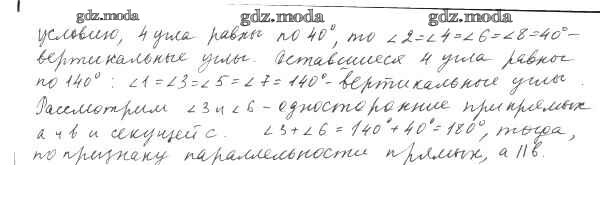 gdz.moda gdz.moda gdz.moda
условию, 4 угла равны по 40°, то ∠2=∠4=∠6=∠8=40°-
вертикальные углы. Оставшиеся 4 угла равны
по 140° : ∠1=∠3=∠5=∠7=140°-вертикальные углы.
Рассмотрим ∠3 и ∠6 - односторонние при прямых
а и в и секущей с. ∠3+∠6=140°+40°=180°, тогда,
по признаку параллельности прямых, а || в.